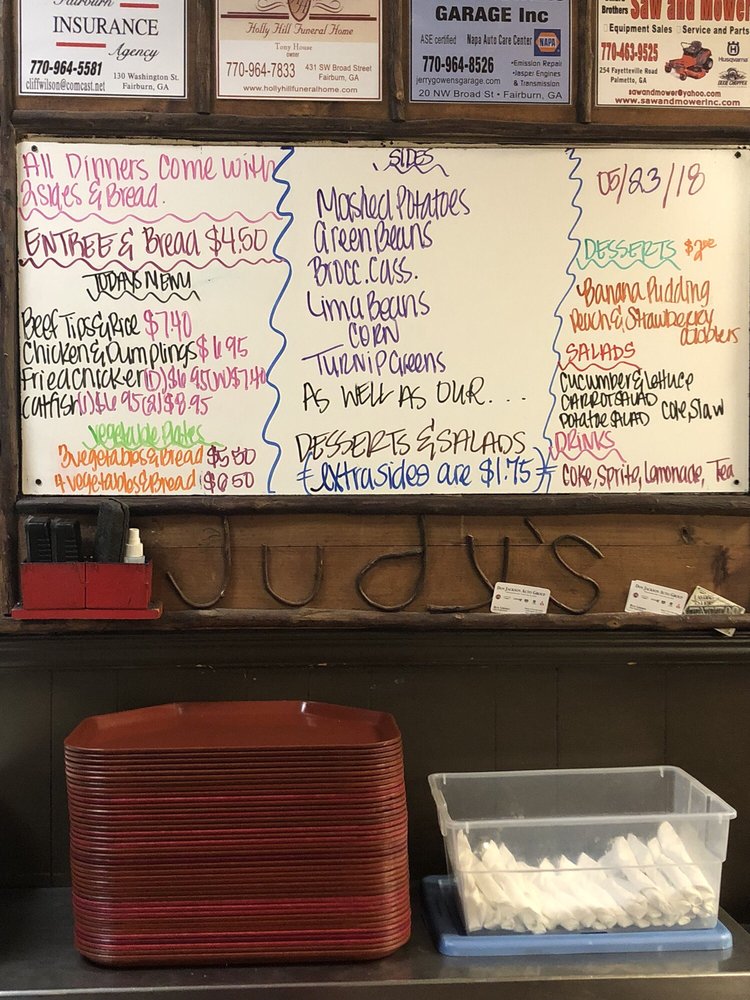 Fairburn
INSURANCE
Agency
770-964-5581
cliffwilson@comcast.net
130 Washington St.
Fairburn, GA
Holly Hill Funeral Home
Tony House
owner
770-964-7833
431 SW Broad Street
Fairburn, GA
www.hollyhillfuneralhome.com
GARAGE Inc
ASE certified
Napa Auto Care Center
NAPA
770-964-8526
•Emission Repair
•Jasper Engines
& Transmission
jerrygowensgarage.com
20 NW Broad St • Fairburn, GA
Brothers
Saw and Mower
Equipment Sales
Service and Parts
770-463-9525
Husqvarna
254 Fayetteville Road
Palmetto, GA
DIXIE CHOPPER
sawandmower@yahoo.com
www.sawandmowerinc.com
All Dinners Come with
2 sides & Bread.
ENTREE & Bread $4.50
TODAYS MENU
Beef Tips & Rice $7.40
Chicken & Dumplings $6.95
Fried Chicken (D) $6.95 (W) $7.40
Catfish (1) $6.95 (2) $8.95
Vegetable Plates
3 vegetables & Bread $5.50
4 vegetables & Bread $6.50
SIDES
Mashed Potatoes
Green Beans
Brocc. Cass.
Lima Beans
CORN
Turnip Greens
AS WELL AS OUR...
DESSERTS & SALADS
(extra sides are $1.75)
05/23/18
DESSERTS
Banana Pudding
Peach & Strawberry
Cobblers
SALADS
Cucumber & Lettuce
CARROT SALAD
POTATOE SALAD
Cole, Slaw
DRINKS
Coke, Sprite, Lemonade, Tea
Judy's
DON JACKSON AUTO GROUP
DON JACKSON AUTO GROUP